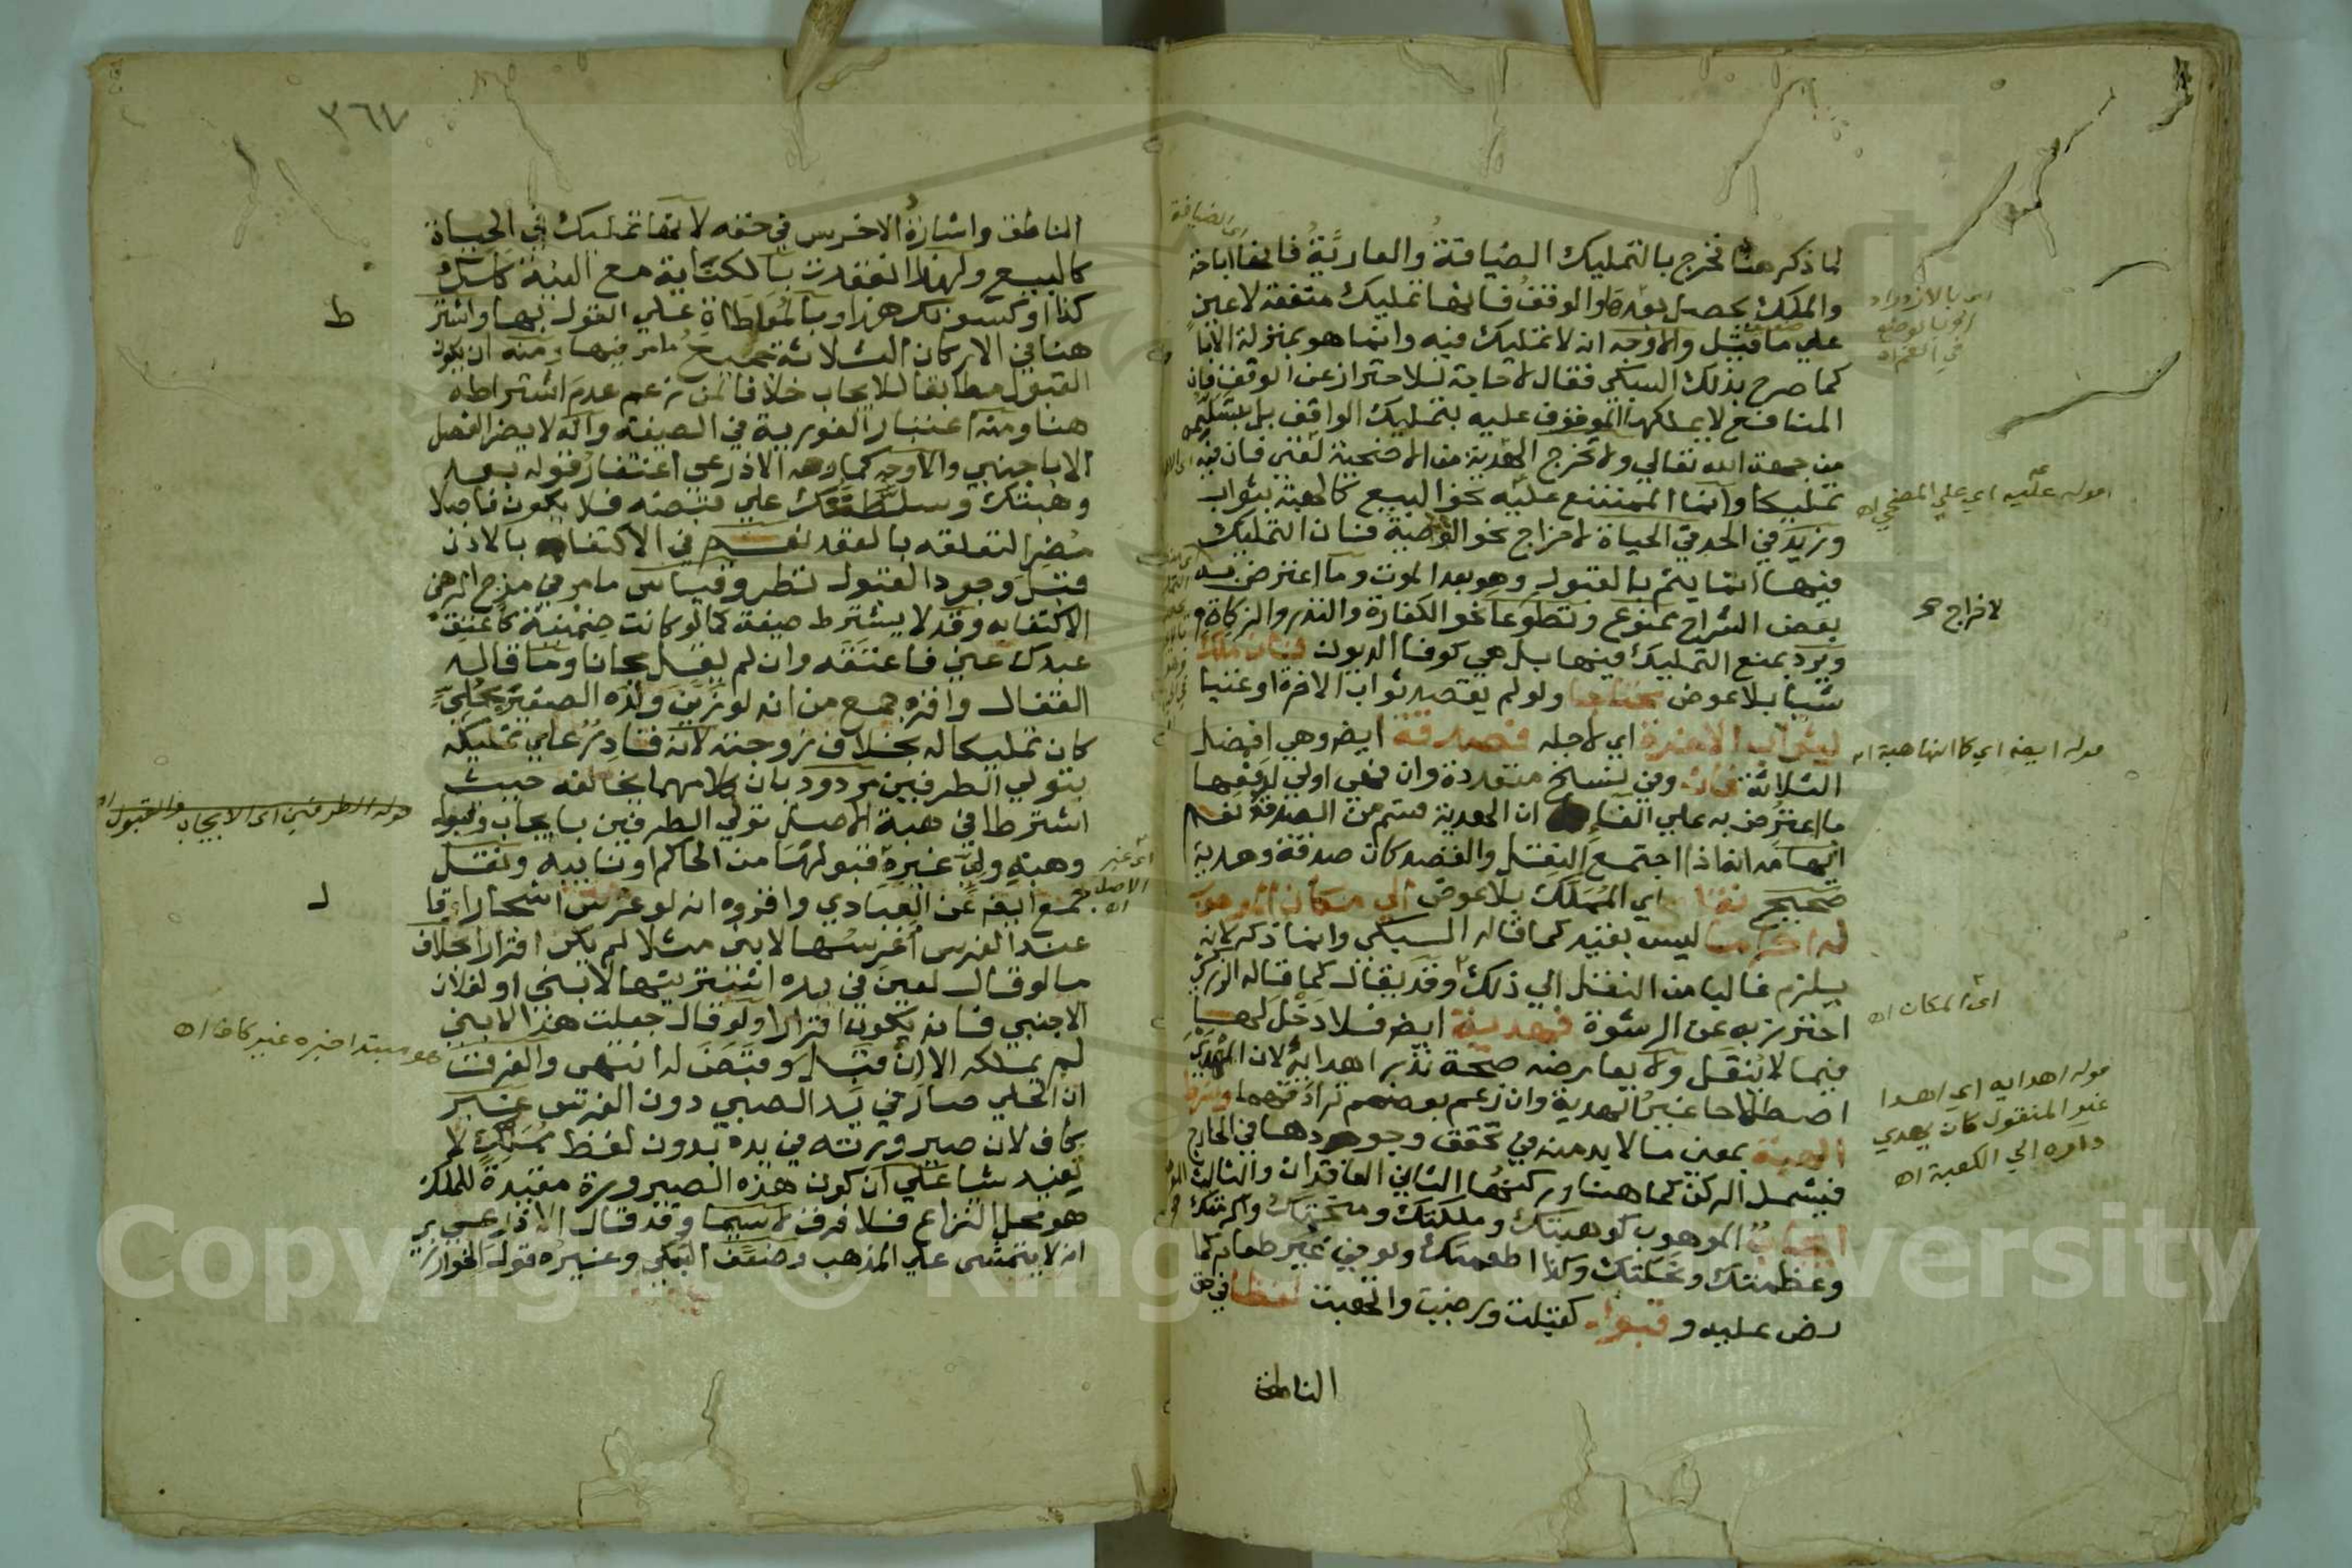 لما ذكر هنا فخرج بالتمليك الضيافة والعارية فانها اباحة
والملك يحصل بعده والوقف فانها تمليك منفعة لا عين
علي ما قيل والاوجه انه لا تمليك فيه وانما هو بمنزلة الاباحة
كما صرح بذلك السبكي فقال لا حاجة للاحتراز عن الوقف فان
المنافع لا يملكها الموقوف عليه بتمليك الواقف بل بتسليمه
من جهة الله تعالي ولا تخرج الهدية من الاضحية لغني فان فيه
تمليكا وانما الممتنع عليه نحو البيع كالهبة بثواب
وزيد في الحد في الحياة لاخراج نحو الوصية فان التمليك
فيها انما يتم بالقبول وهو بعد الموت وما اعترض به
بعض الشراح ممنوع وتطوعا نحو الكفارة والنذر والزكاة
ويرد بمنع التمليك فيها بل هي كوفاء الديون فان ملك
شيا بلا عوض محتاجا ولو لم يقصد ثواب الاخرة او غنيا
لثواب الاخرة اي لاجله فصدقة ايضا وهي افضل
الثلاثة فان وفي نسخ متعددة وان فهي اولي لدفعها
ما اعترض به علي الفاء ان الهدية قسم من الصدقة نعم
اجتمع النقل والقصد كان صدقة وهدية
صحيح نقله اي المملك بلا عوض الي مكان الموهوب
له اكراما ليس بقيد كما قاله السبكي وانما ذكر لانه
يلزم غالبا من النقل الي ذلك وقد يقال كما قاله الزركشي
احترز به عن الرشوة فهدية ايضا فلا دخل لها
فيما لا ينقل ولا يعارضه صحة نذر اهدايه لان الهدي
اصطلاحا غير الهدية وان زعم بعضهم ترادفهما وشرط
الهبة بمعني ما لا بد منه في تحقق وجودها في الخارج
فيشمل الركن كما هنا وركنها الثاني العاقدان والثالث
ايجاب الموهوب كوهبتك وملكتك ومنحتك واكرمتك
وعظمتك ونحلتك وكذا اطعمتك ولو في غير طعام كما
نص عليه وقبول كقبلت ورضيت واتهبت لفظا في حق
الناطق
اي الضيافة
اي بالازدراد
او بالوضع
في الفم اه
قوله عليه اي علي المضحي اه
لاخراج صح
قوله ايضا اي كما انها هبة اه
اي المكان اه
قوله اهدايه اي اهدا
غير المنقول كان يهدي
داره الي الكعبة اه
٣٦٧
الناطق واشارة الاخرس في حقه لانها تمليك في الحياة
كالبيع ولهذا انعقدت بالكناية مع النية كلك
كذا او كسوتك هذا وبالمعاطاة علي القول بها واشترط
هنا في الاركان الثلاثة جميع ما مر فيها ومنه ان يكون
القبول مطابقا للايجاب خلافا لمن زعم عدم اشتراطه
هنا ومنه اعتبار الفورية في الصيغة وانه لا يضر الفصل
الا باجنبي والاوجه كما رجحه الاذرعي اغتفار قوله بعد
وهبتك وسلطتك علي قبضه فلا يكون فاصلا
مضرا لتعلقه بالعقد نعم في الاكتفاء بالاذن
قبل وجود القبول نظر وقياس ما مر في مزج الرهن
الاكتفا به وقد لا يشترط صيغة كما لو كانت ضمنية كاعتق
عبدك عني فاعتقه وان لم يقل مجانا وما قاله
القفال واقره جمع من انه لو زين ولده الصغير بحلي
كان تمليكا له بخلاف زوجته لانه قادر علي تمليكه
بتولي الطرفين مردود بان كلامهما يخالفه حيث
اشترطا في هبة الاصل تولي الطرفين بايجاب وقبول
وهبة ولي غيره قبولها من الحاكم او نايبه ونقل
جمع ايضا عن العبادي واقروه انه لو غرس اشجارا وقال
عند الغرس اغرسها لابني مثلا لم يكن اقرارا بخلاف
ما لو قال لعين في يده اشتريتها لابني او لفلان
الاجنبي فانه يكون اقرارا ولو قال جعلت هذا لابني
لم يملكه الا ان قبل وقبض له انتهي والفرق
ان الحلي صار في يد الصبي دون الغرس غير
كاف لان صيرورته في يده بدون لفظ مملك لا
يفيد شيا علي ان كون هذه الصيرورة مفيدة للملك
هو محل النزاع فلا فرق لا سيما وقد قال الاذرعي
انه لا يتمشي علي المذهب وضعف السبكي وغيره قول الخوارزمي
ط
قوله الطرفين اي الايجاب والقبول اه
اي غير
الاصل
اه
هو مبتدا خبره غير كاف اه
Copyright © King Saud University